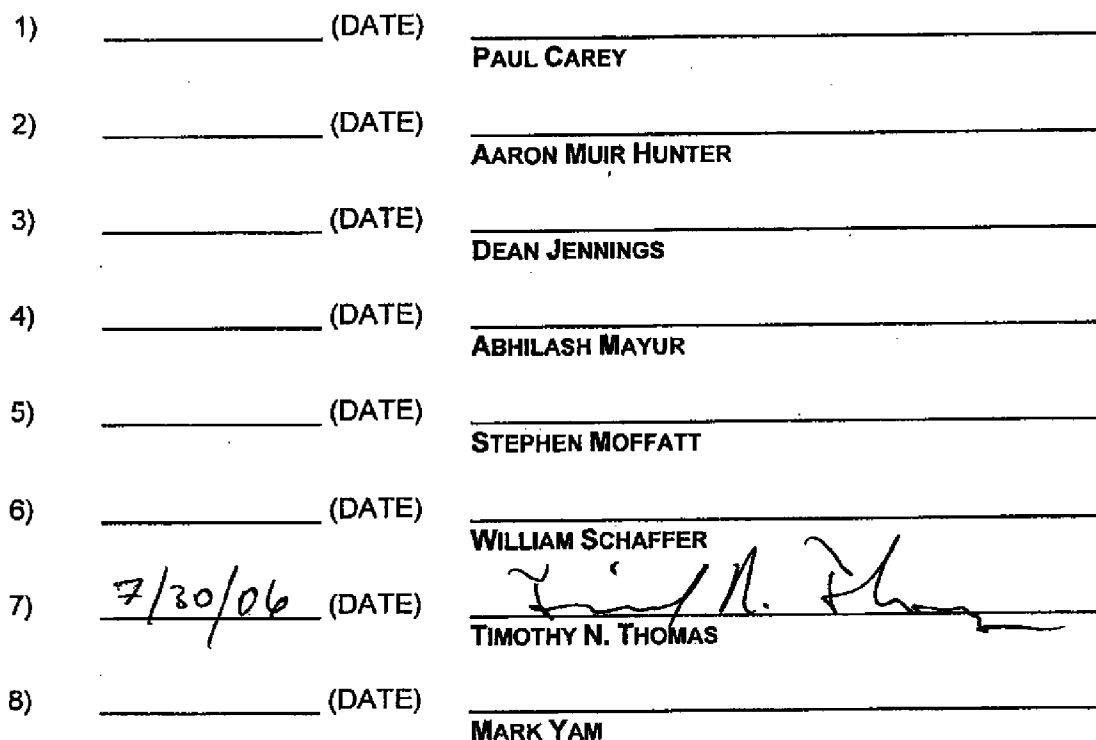 1) (DATE)
PAUL CAREY
2) (DATE)
AARON MUIR HUNTER
3) (DATE)
DEAN JENNINGS
4) (DATE)
ABHILASH MAYUR
5) (DATE)
STEPHEN MOFFATT
6) (DATE)
WILLIAM SCHAFFER
7) 7/30/06 (DATE) Timothy N. Thomas
TIMOTHY N. THOMAS
8) (DATE)
MARK YAM